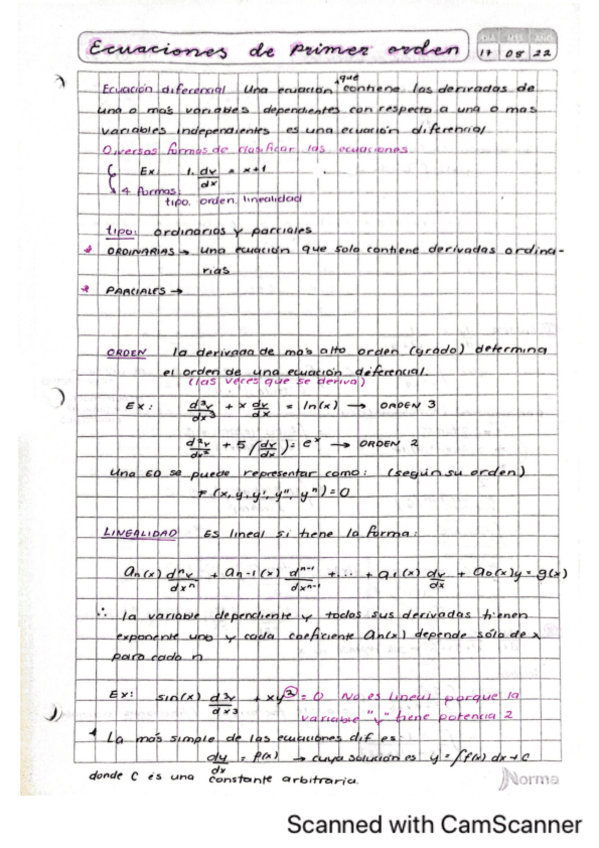 Ecuaciones de primer orden
DIA MES AÑO
17 08 22
Ecuación diferencial Una ecuación que contiene las derivadas de
una o más variables dependientes con respecto a una o mas
variables independientes es una ecuación diferencial
Diversas formas de clasificar las ecuaciones
Ex: 1. dy/dx = x+1
4 formas:
tipo, orden, linealidad
tipo: ordinarias y parciales
* ORDINARIAS → una ecuación que solo contiene derivadas ordina-
rias
* PARCIALES →
ORDEN la derivada de más alto orden (grado) determina
el orden de una ecuación diferencial.
(las veces que se deriva)
Ex: d³y/dx³ + x dy/dx = ln(x) → ORDEN 3
d²y/dx² + 5(dy/dx) = eˣ → ORDEN 2
Una ED se puede representar como: (según su orden)
F(x, y, y', y'', yⁿ) = 0
LINEALIDAD Es lineal si tiene la forma:
an(x) dⁿy/dxⁿ + an-1(x) dⁿ⁻¹/dxⁿ⁻¹ +... + a1(x) dy/dx + a0(x)y = g(x)
∴ la variable dependiente y todos sus derivadas tienen
exponente uno y cada coeficiente an(x) depende sólo de x
para cada n
Ex: sin(x) d³y/dx3 + xy² = 0 No es lineal porque la
variable "y" tiene potencia 2
La más simple de las ecuaciones dif es:
dy/dx = f(x) → cuya solución es y = ∫f(x) dx + C
donde C es una constante arbitraria.
Norma
Scanned with CamScanner